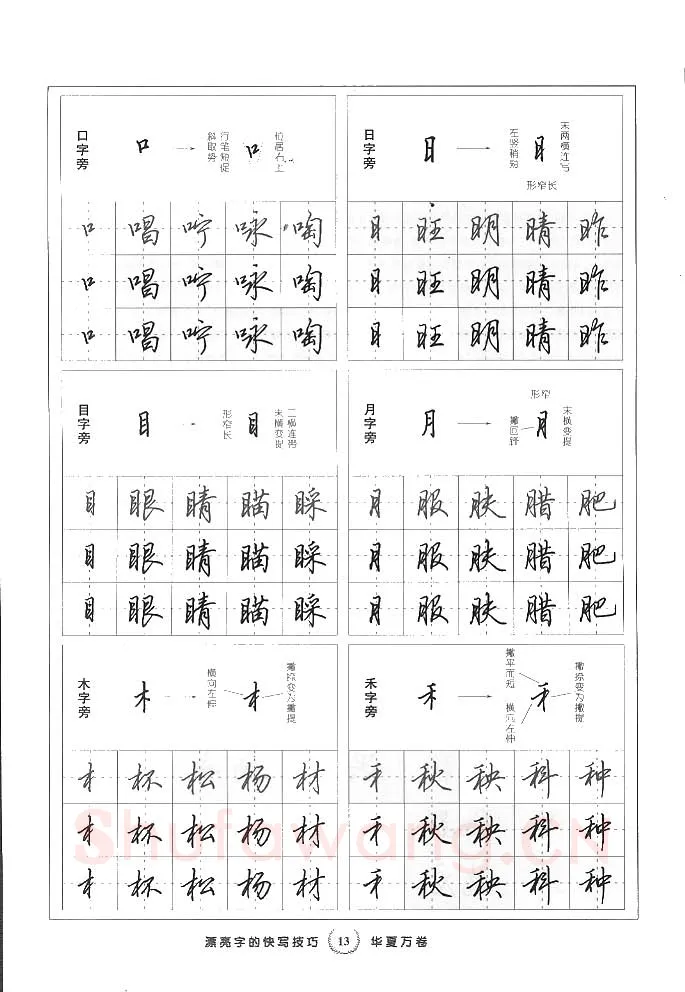 口字旁
口
行笔短促
斜取势
口
位居左上
口 唱 咛 咏 啕
口 唱 咛 咏 啕
口 唱 咛 咏 啕
日字旁
日
左竖稍短
日
末两横连写
形窄长
日 旺 明 晴 昨
日 旺 明 晴 昨
日 旺 明 晴 昨
目字旁
目
形窄长
目
二横连带
末横变提
目 眼 睛 瞄 睬
目 眼 睛 瞄 睬
目 眼 睛 瞄 睬
月字旁
月
形窄
撇回锋
月
末横变提
月 服 肤 腊 肥
月 服 肤 腊 肥
月 服 肤 腊 肥
木字旁
木
横向左伸
木
撇捺变为撇提
木 杯 松 杨 材
木 杯 松 杨 材
木 杯 松 杨 材
禾字旁
禾
撇平而短
横向左伸
禾
撇捺变为撇提
禾 秋 秧 科 种
禾 秋 秧 科 种
禾 秋 秧 科 种
Shufawang.CN
漂亮字的快写技巧 13 华夏万卷